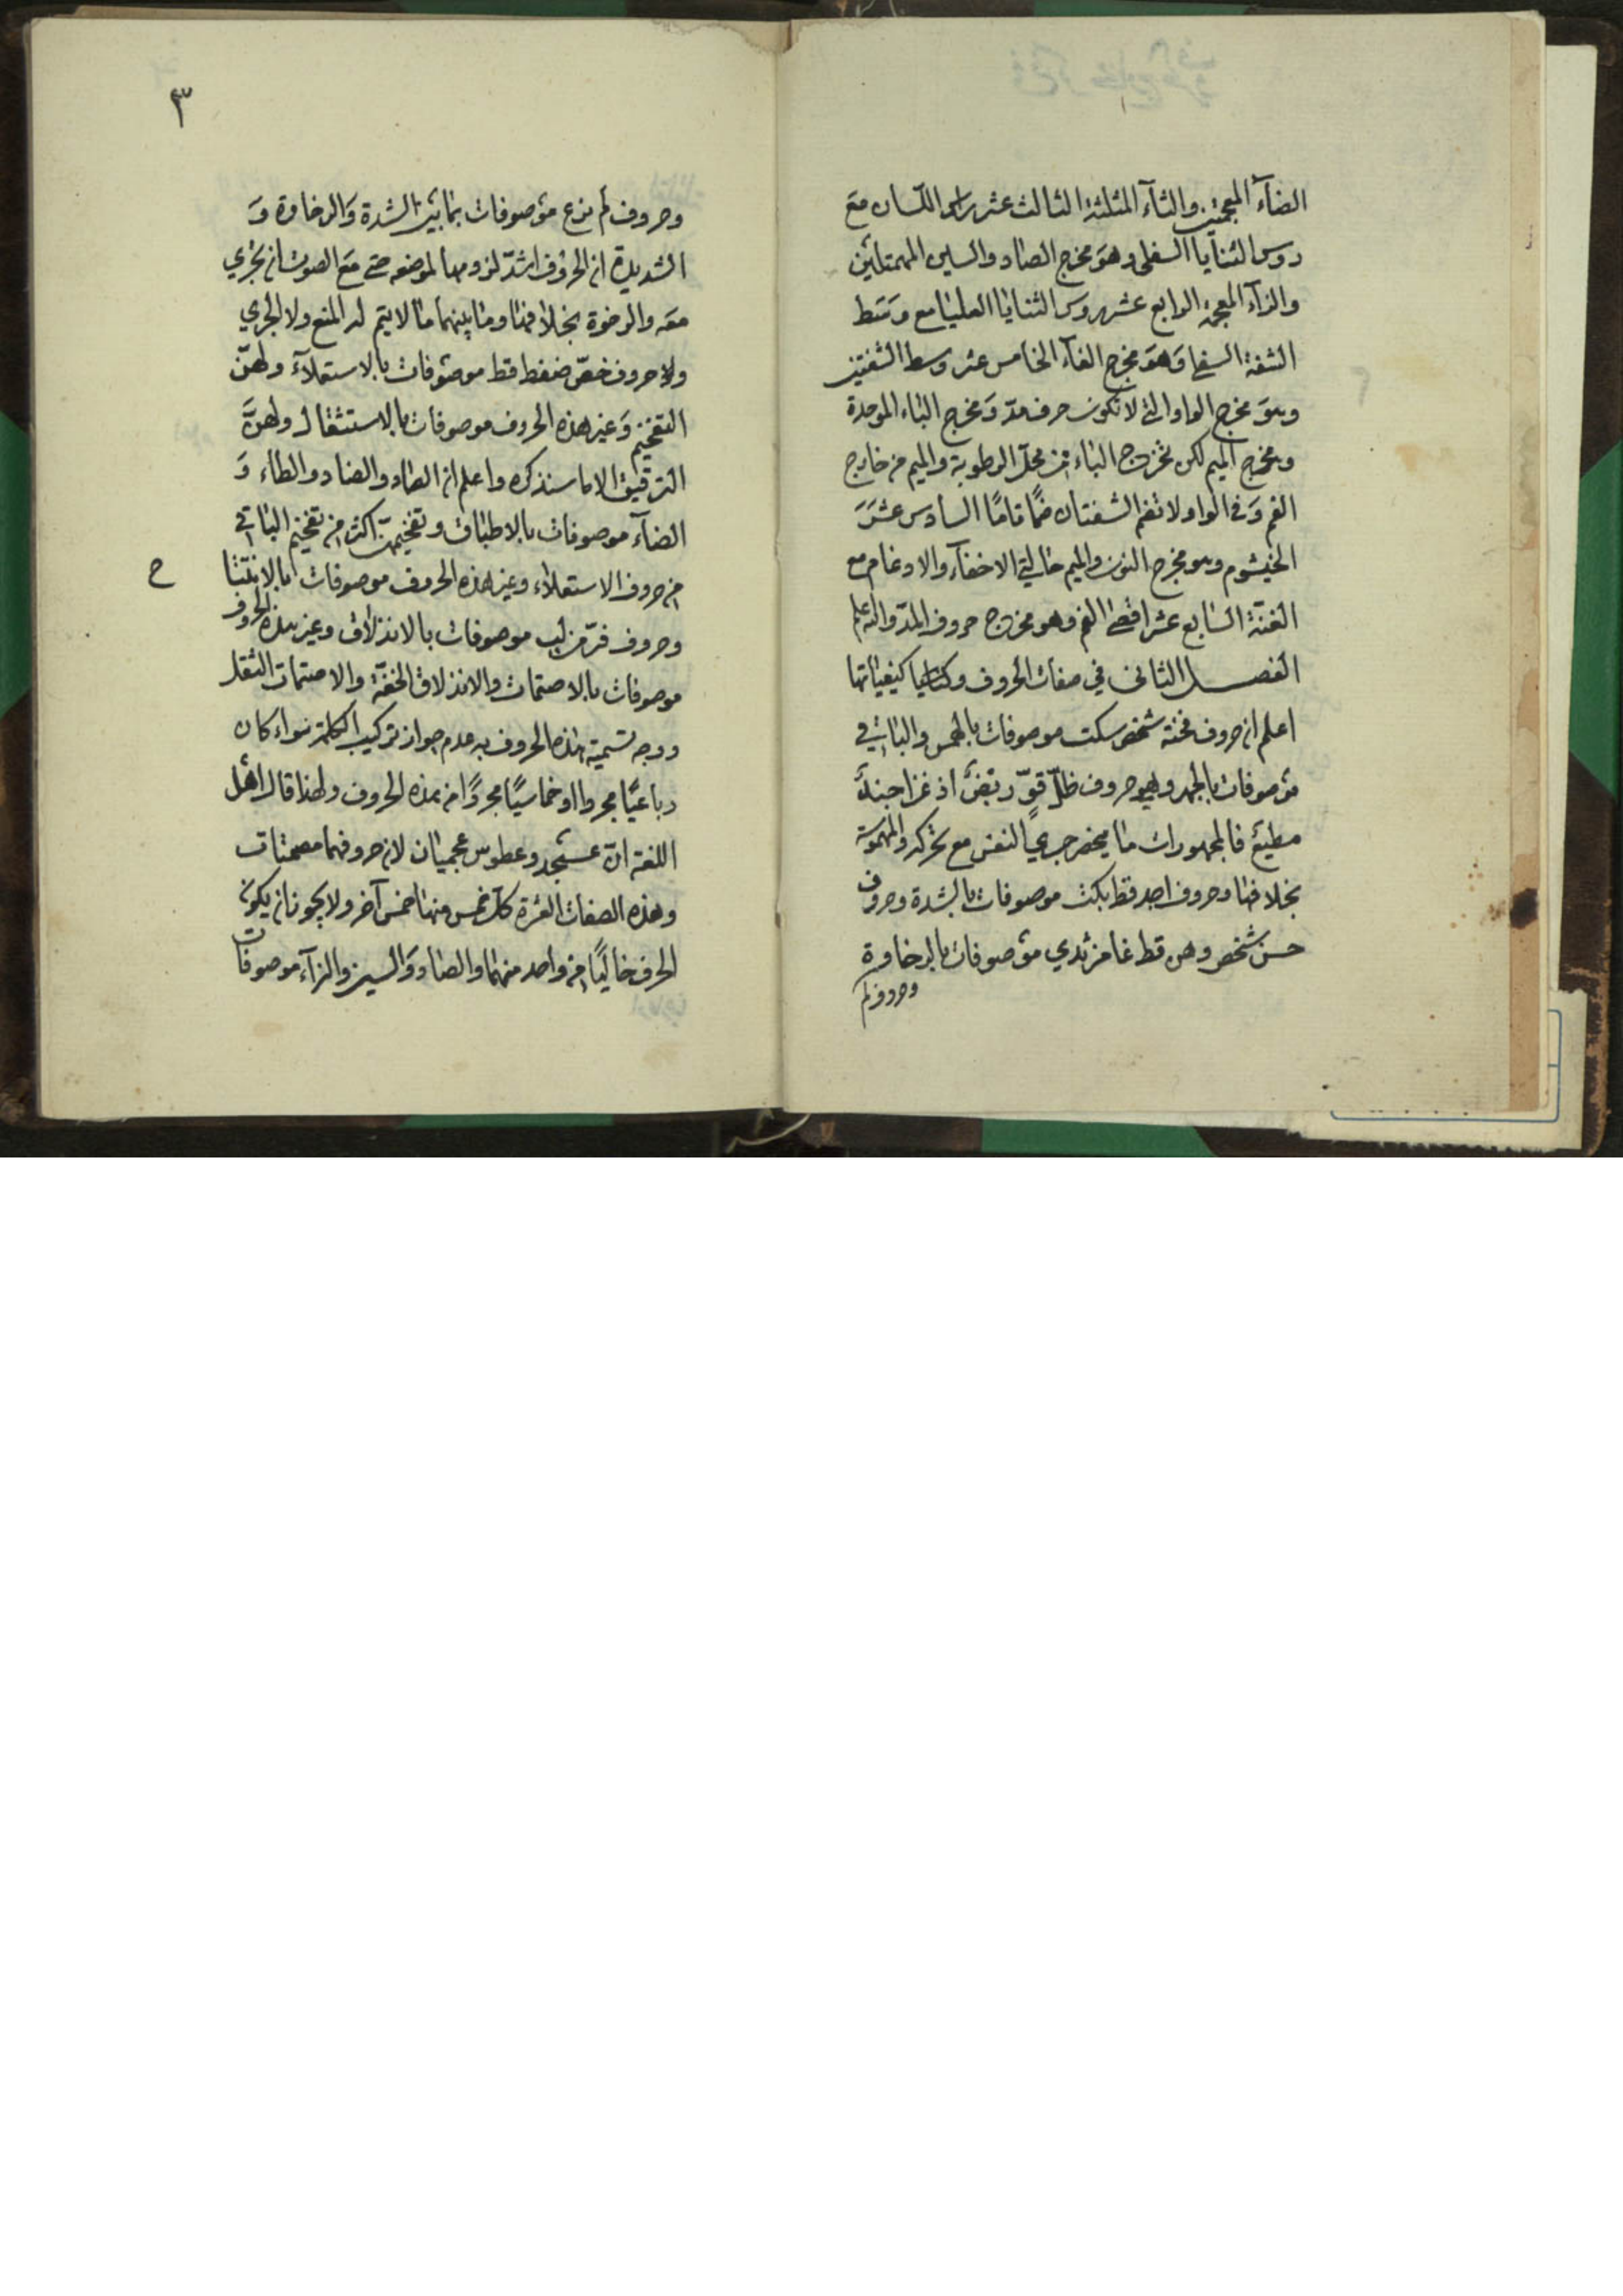 الضآء المعجمتين والثآء المثلثة الثالث عشر راس اللسان مع
روس الثنايا السفلى وهو مخرج الصاد والسين المهملتين
والزآء المعجمة الرابع عشر روس الثنايا العليا مع وسط
الشفة السفلى وهو مخرج الفآء الخامس عشر وسط الشفتين
وهو مخرج الواو التي لا تكون حرف مد ومخرج الباء الموحدة
ومخرج الميم لكن تخرج الباء من محل الرطوبة والميم من خارج
الفم وفي الواو لا تضم الشفتان ضمًا تامًا السادس عشر
الخيشوم وهو مخرج النون والميم حالتي الاخفآء والادغام مع
الغنة السابع عشر اقصى الفم وهو مخرج حروف المد والله اعلم
الفصل الثاني في صفات الحروف وكيفياتها
اعلم ان حروف فحثه شخص سكت موصوفات بالهمس والباقي
موصوفات بالجهر وهي حروف ظل قوّ ربض اذ غزا جند
مطيع فالمجهورات ما ينحصر جري النفس مع تحركه والمهموسة
بخلافها وحروف اجد قط بكت موصوفات بالشدة وحروف
حسن شخص وهن قط غامز ثدي موصوفات بالرخاوة
وحروف لم
٣
وحروف لم يرع موصوفات بما بين الشدة والرخاوة و
الشديدة ان الحروف اشد لزومها لموضعه حتى منع الصوت ان يجري
معه والرخوة بخلافها وما بينهما ما لا يتم له المنع ولا الجري
وحروف خصّ ضغط قظ موصوفات بالاستعلآء ولهنّ
التفخيم وغير هذه الحروف موصوفات بالاستثقال ولهنَّ
الترقيق الا ما سنذكره واعلم ان الصاد والضاد والطاء و
الضآء موصوفات بالاطباق وتفخيمهن اكثر من تفخيم الباقي
من حروف الاستعلاء وغير هذه الحروف موصوفات بالانفتا
ح
وحروف فرّ من لب موصوفات بالانذلاق وغير هذه الحروف
موصوفات بالاصتمات والانذلاق الخفّة والاصتمات الثقل
ووجه تسمية هذه الحروف به عدم جواز تركيب الكلمة سواء كان
رباعيًا مجردا او خماسيًا مجردًا من هذه الحروف ولهذا قال اهل
اللغة انّ عسجد وعطوس عجميان لان حروفهما مصمتات
وهذه الصفات العشرة كل خمس منها خمس آخر ولا يجوز ان يكون
الحرف خاليًا من واحد منهما والصاد والسين والزآء موصوفات